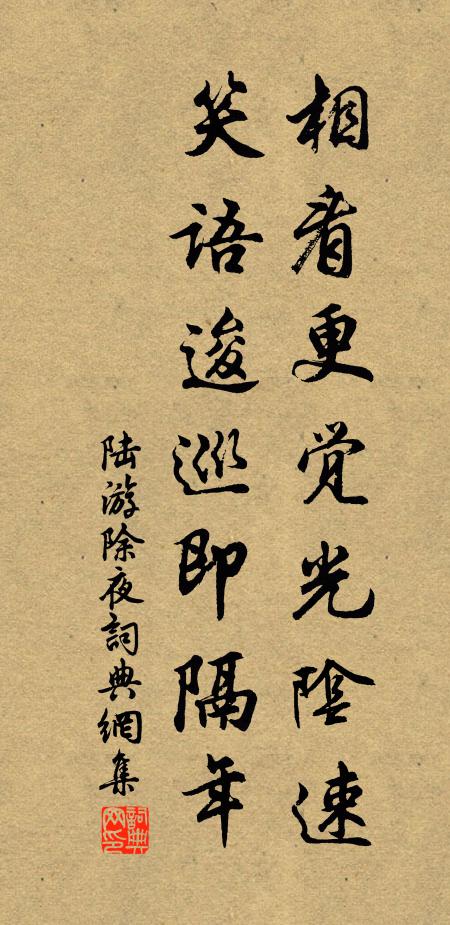 相看更觉光陰速
笑语逡巡即隔年
陆游除夜詞典網集
詞典网印